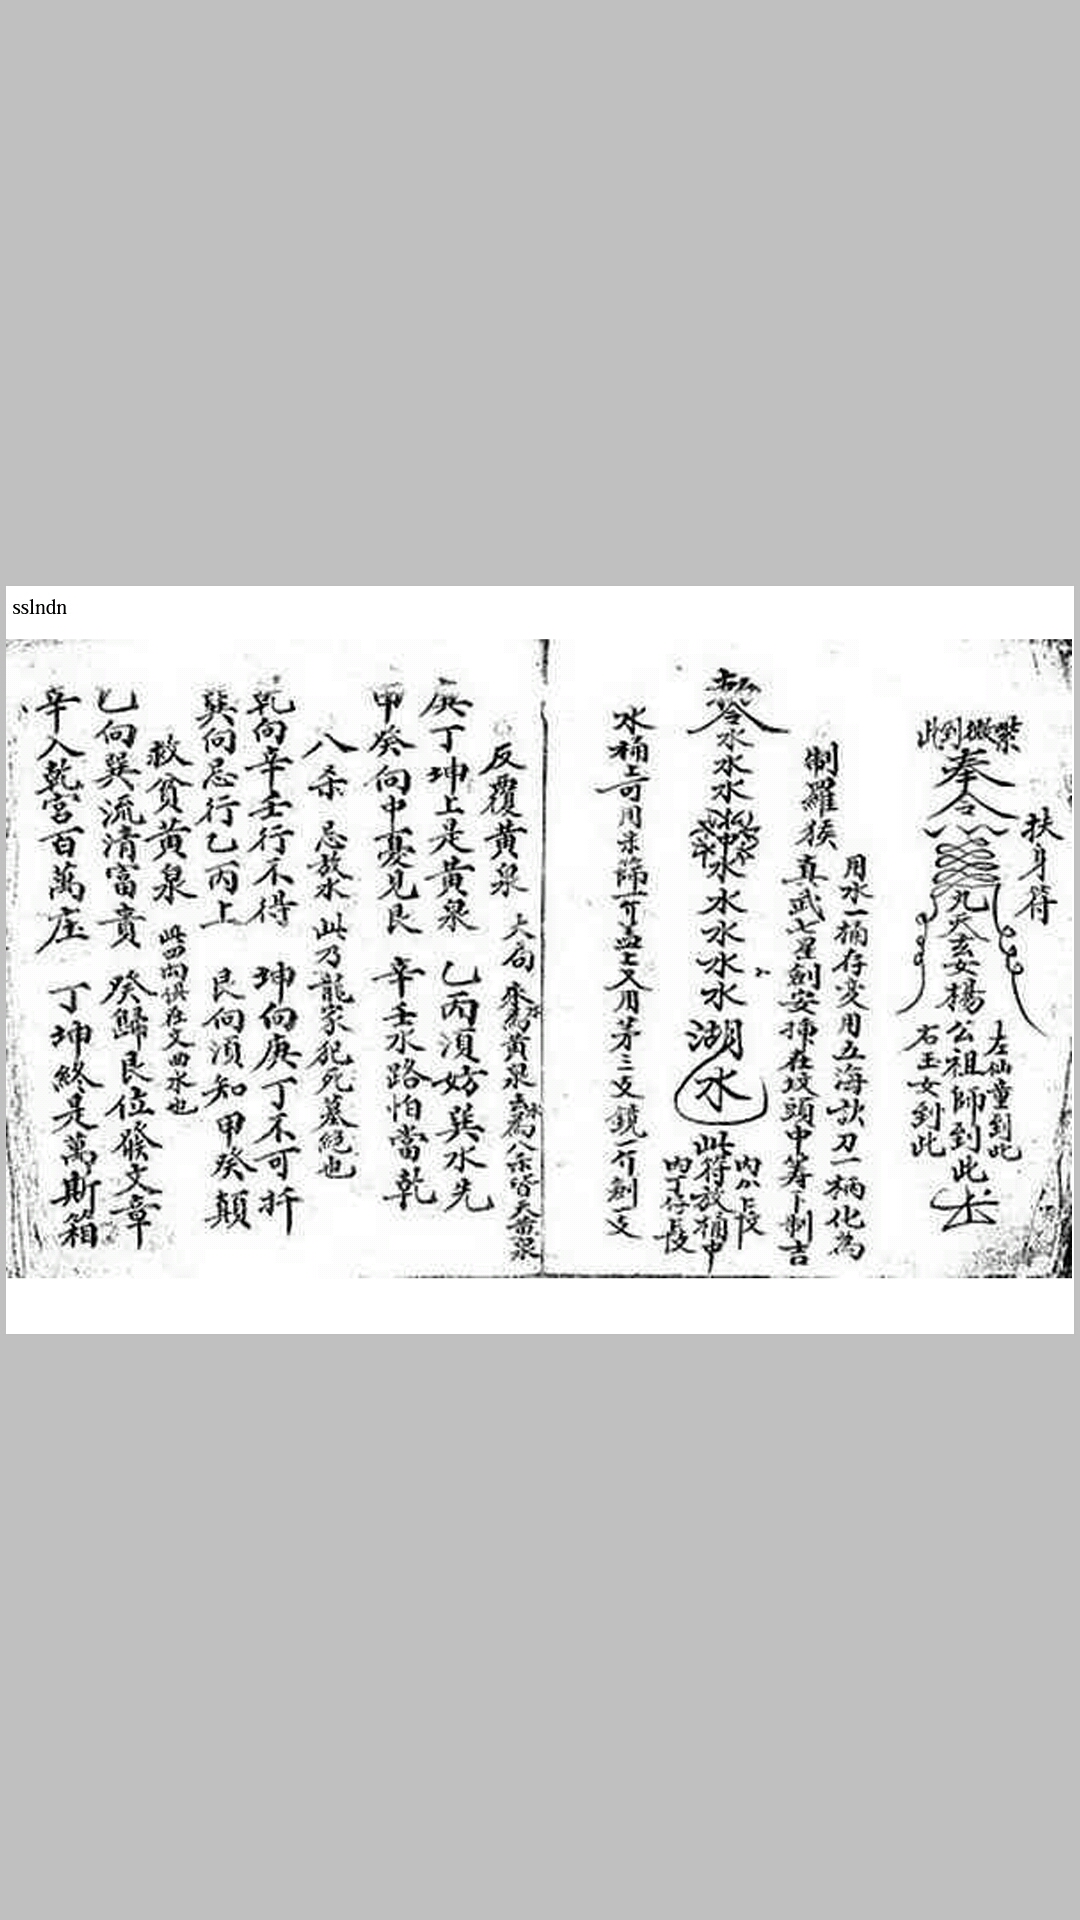 sslndn
扶身符
紫微到此
奉令
九天玄女楊公祖師到此
左仙童到此
右玉女到此
用水一桶存变用五海訣刀一柄化為
制羅猴
真武七星劍安揷在坟頭中筹下制吉
令水水水
水水水水水湖水
此符放桶中
水桶上可用米篩一介盖上又用茅三支鏡一介劍一支
反覆黃泉
大局
來為黃泉去為八杀皆大黃泉
庚丁坤上是黃泉 乙丙須妨巽水先
甲癸向中憂見艮 辛壬水路怕當乾
八杀 忌放水 此乃龍家犯死墓絕也
乾向辛壬行不得 坤向庚丁不可扦
巽向忌行乙丙上 艮向須知甲癸顛
救貧黃泉
此四向俱在文曲水也
乙向巽流清富貴 癸歸艮位發文章
辛入乾宮百萬庄 丁坤終是萬斯箱